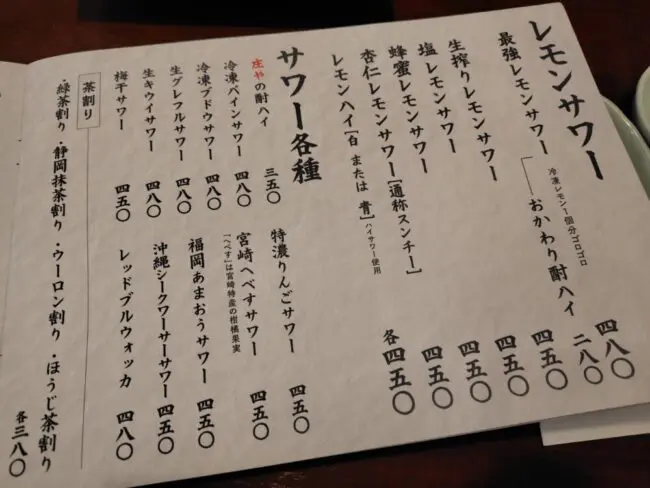 レモンサワー
最強レモンサワー 四八〇
冷凍レモン1個分ゴロゴロ
おかわり酎ハイ 二八〇
生搾りレモンサワー 四五〇
塩レモンサワー 四五〇
蜂蜜レモンサワー 四五〇
杏仁レモンサワー[通称スンチー] 四五〇
レモンハイ[白 または 青]ハイサワー使用 各四五〇
サワー各種
庄やの酎ハイ 三五〇
冷凍パインサワー 四八〇
冷凍ブドウサワー 四八〇
生グレフルサワー 四八〇
生キウイサワー 四八〇
梅干サワー 四五〇
特濃りんごサワー 四五〇
宮崎へべすサワー 四五〇
「へべす」は宮崎特産の柑橘果実
福岡あまおうサワー 四五〇
沖縄シークワーサーサワー 四五〇
レッドブルウォッカ 四八〇
茶割り
・緑茶割り・静岡抹茶割り・ウーロン割り・ほうじ茶割り
各三八〇